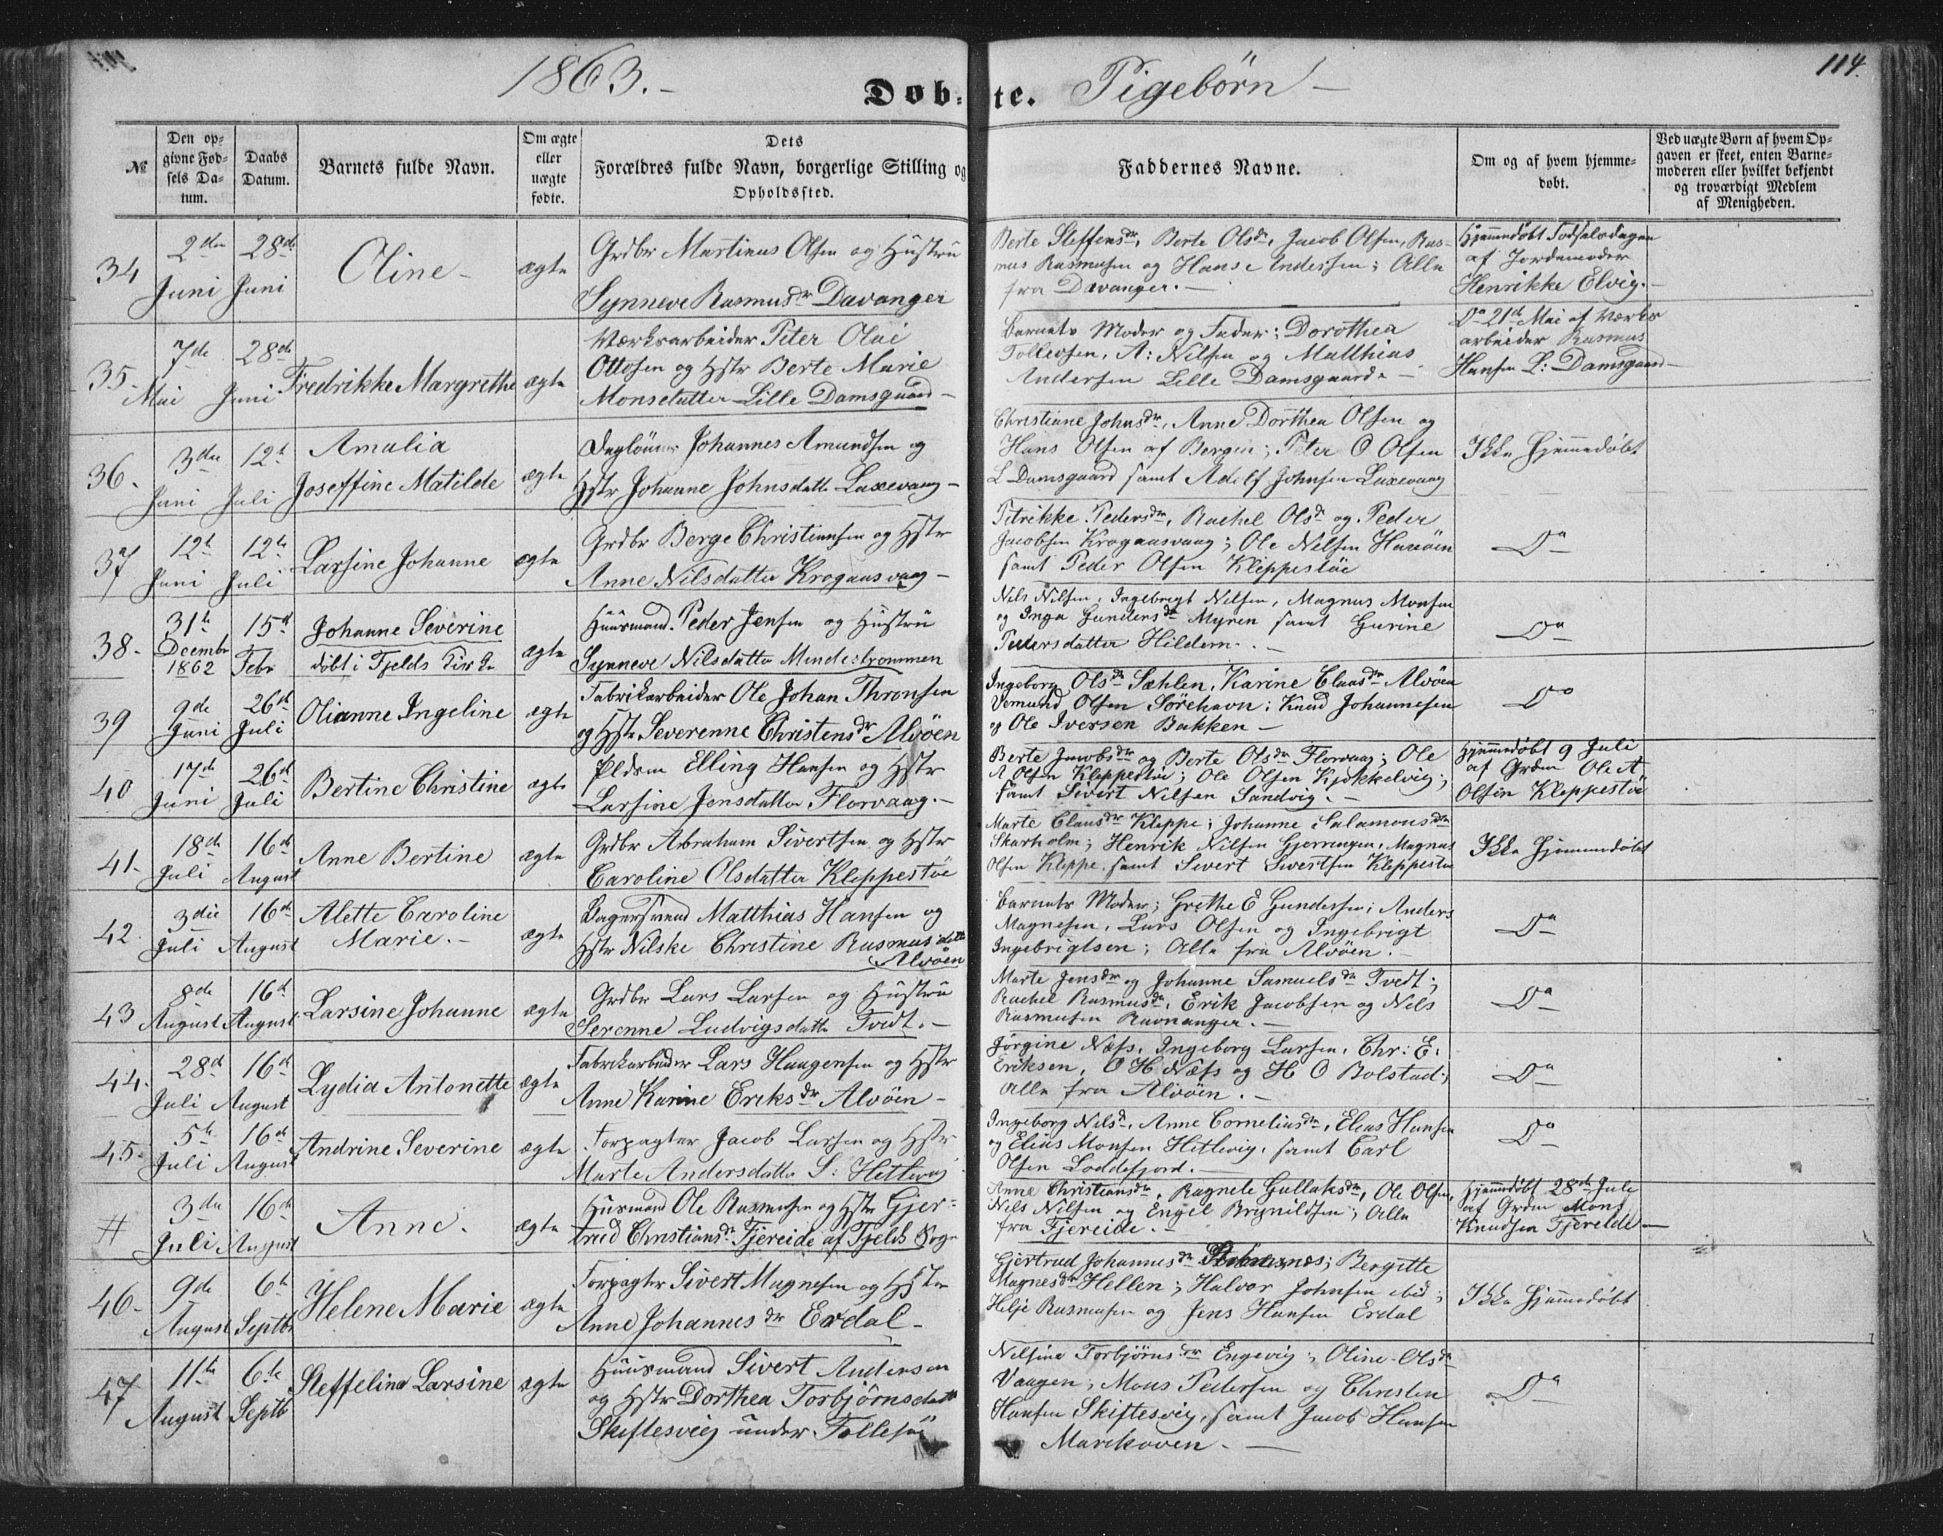 1863.- Døb-te. Pigebørn - 114.
№
Den op-
givne Fød-
sels Da-
tum.
Daabs
Datum.
Barnets fulde Navn.
Om ægte
eller
uægte
fødte.
Dets
Forældres fulde Navn, borgerlige Stilling og
Opholdssted.
Faddernes Navne.
Om og af hvem hjemme-
døbt.
Ved uægte Børn af hvem Op-
gaven er skeet, enten Barne-
moderen eller hvilket bekjendt
og troværdigt Medlem
af Menigheden.
34 2den Juni 28de Juni Oline - ægte
Grdbr Martinus Olsen og Hustru
Synneve Rasmusdr Davanger
Berte Steffensdr, Berte Olsdr, Jacob Olsen, Ras-
mus Rasmusen og Hans Andersen; Alle
fra Davanger. -
Hjemmedøbt Fødselsdagen
af Jordemoder
Henrikke Elvig. -
35. 7de Mai 28de Juni Fredrikke Margrethe ægte
Værksarbeider Peter Olai
Ottosen og Hstr Berte Marie
Monsdatter Lille Damsgaard -
Barnets Moder og Fader; Dorothea
Tollevsen, A: Nilsen og Matthias
Andersen Lille Damsgaard. -
Do 21de Mai af Værks
arbeider Rasmus
Hansen L: Damsgaard -
36. 3den Juni 12te Juli Amalia
Joseffine Matilde ægte
Daglønner Johannes Amundsen og
Hstr Johanne Johnsdatter Laxevaag -
Christiane Johnsdr, Anne Dorthea Olsen og
Hans Olsen af Bergen; Peter O Olsen
L Damsgaard samt Adolf Johnsen Laxevaag
Ikke Hjemmedøbt
37 12te Juni 12te Juli Larsine Johanne ægte
Grdbr Berge Christiansen og Hstr
Anne Nilsdatter Krogaasvaag -
Petrikke Pedersdr, Rachel Olsdr og Peder
Jacobsen Krogaasvaag; Ole Nilsen Haaøen
samt Peder Olsen Kleppestøe
Do
38. 31te Decembr 1862 15de Febr Johanne Severine
døbt i Fjelds Kirke ægte
Huusmand Peder Jensen og Hustru
Synneve Nilsdatter Mindestrømmen
Nils Nilsen, Ingebrigt Nilsen, Magnus Monsen
og Inga Gundersdr Myren samt Gurine
Pedersdatter Hildern. -
Do
39 9de Juni 26de Juli Olianne Ingeline ægte
Fabrikarbeider Ole Johan Thronsen
og Hstr Severenne Christensdr Alvøen
Ingeborg Olsdr Sæhlen, Karine Clausdr Alvøen
Vemund Olsen Sørehavn; Knud Johannesen
og Ole Iversen Bakken -
Do
40 17de Juni 26de Juli Bertine Christine ægte
Pldsm Elling Hansen og Hstr
Larsine Jensdatter Florvaag. -
Berte Jacobsdr og Berte Olsdr Florvaag; Ole
A Olsen Kleppestøe; Ole Olsen Kjøkkelvig;
samt Sivert Nilsen Sandvig. -
Hjemmedøbt 9 Juli
af Grdm Ole A
Olsen Kleppestøe
41. 18de Juli 16de August Anne Bertine ægte
Grdbr Abraham Sivertsen og Hstr
Caroline Olsdatter Kleppestøe
Marte Clausdr Kleppe; Johanne Salamonsdr
Skarholm; Henrik Nilsen Gjerningen, Magnus
Olsen Kleppe samt Sivert Sivertsen Kleppestøe
Ikke Hjemmedøbt
42. 3die Juli 16de August Alette Caroline
Marie. - ægte
Bagersvend Matthias Hansen og
Hstr Nilske Christine Rasmusdatter
Alvøen
Barnets Moder; Grethe E Gundersen; Anders
Magnesen, Lars Olsen og Ingebrigt
Ingebrigtsen; Alle fra Alvøen. -
Do
43 8de August 16de August Larsine Johanne ægte
Grdbr Lars Larsen og Hustru
Serenne Ludvigsdatter Tvedt. -
Marte Jensdr og Johanne Samuelsdr Tvedt;
Rachel Rasmusdr, Erik Jacobsen og Nels
Rasmusen Ravnanger. -
Do
44. 28de Juli 16de August Lydia Antonette ægte
Fabrikarbeider Lars Haagensen og Hstr
Anne Karine Eriksdr Alvøen -
Jørgine Næss, Ingeborg Larsen, Chr: E:
Eriksen, O H Næss og H O Bolstad;
Alle fra Alvøen. -
Do
45. 5te Juli 16de August Andrine Severine ægte
Forpagter Jacob Larsen og Hstr
Marte Andersdatter S: Hetlevig
Ingeborg Nilsd, Anne Corneliusdr, Elias Hansen
og Elias Monsen Hetlevig, samt Carl
Olsen Loddefjord. -
Do
# 3die Juli 16de August Anne. ægte
Huusmand Ole Rasmusen og Hstr Gjer-
trud Christiansdr Fjereide af Fjelds Sogn
Anne Christiansdr, Ragnele Gullaksdr, Ole Olsen,
Nils Nilsen og Engel Brynildsen; Alle
fra Fjereide. -
Hjemmedøbt 28de Juli
af Grdm Mons
Knudsen Fjereide -
46. 9de August 6te Septbr Helene Marie ægte
Forpagter Sivert Magnesen og Hstr
Anne Johannesdr Erdal -
Gjertrud Johannesdr Strømsnes; Bergitte
Magnesdr Hellen; Halvor Johnsen ibid;
Helje Rasmusen og Jens Hansen Erdal
Ikke Hjemmedøbt
47 11te August 6te Septbr Steffelina Larsine ægte
Huusmand Sivert Andersen
og Hstr Dorthea Torbjørnsdatter
Skiftesvig under Follesø
Nilsine Torbjørnsdr Engevig; Oline Olsdr
Vaagen; Mons Pedersen og Christen
Hansen Skiftesvig, samt Jacob Hansen
Marikoven. -
Do